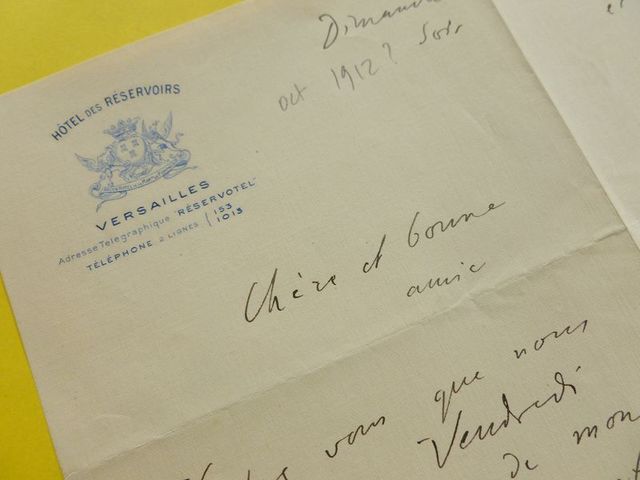 Dimanche
Soir
oct 1912?
HÔTEL DES RÉSERVOIRS
VERSAILLES
Adresse Télégraphique "RÉSERVOTEL"
TÉLÉPHONE 2 LIGNES 153
1013
Chère et bonne
amie
vous que nous
Vendredi
de mon